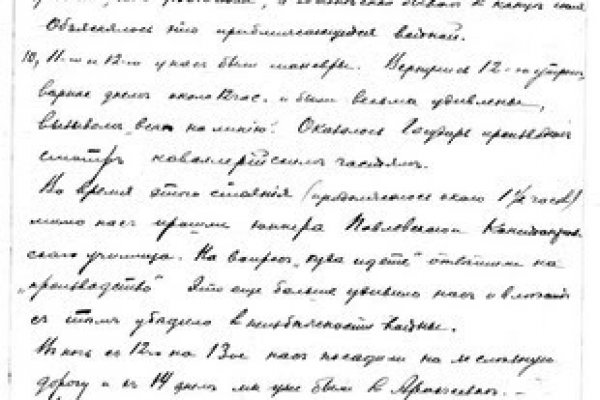 Объяснялось это приближающейся войной.
10, 11-го и 12-го у нас были маневры. Вернулись 12-го утром,
вернее днем около 12 час. и были весьма удивлены,
вызовом „всем на линию“. Оказалось Государь производит
смотр кавалерийским частям.
Во время этого стояния (продолжалось около 1½ часов)
мимо нас прошли юнкера Павловского
ского училища. На вопрос „куда идете“ ответили на
„производство“ Это еще больше удивило нас и
с тем убедило в неизбежности войны.
В ночь с 12го на 13ое нас посадили на железную
дорогу и с 14 днем мы уже были в